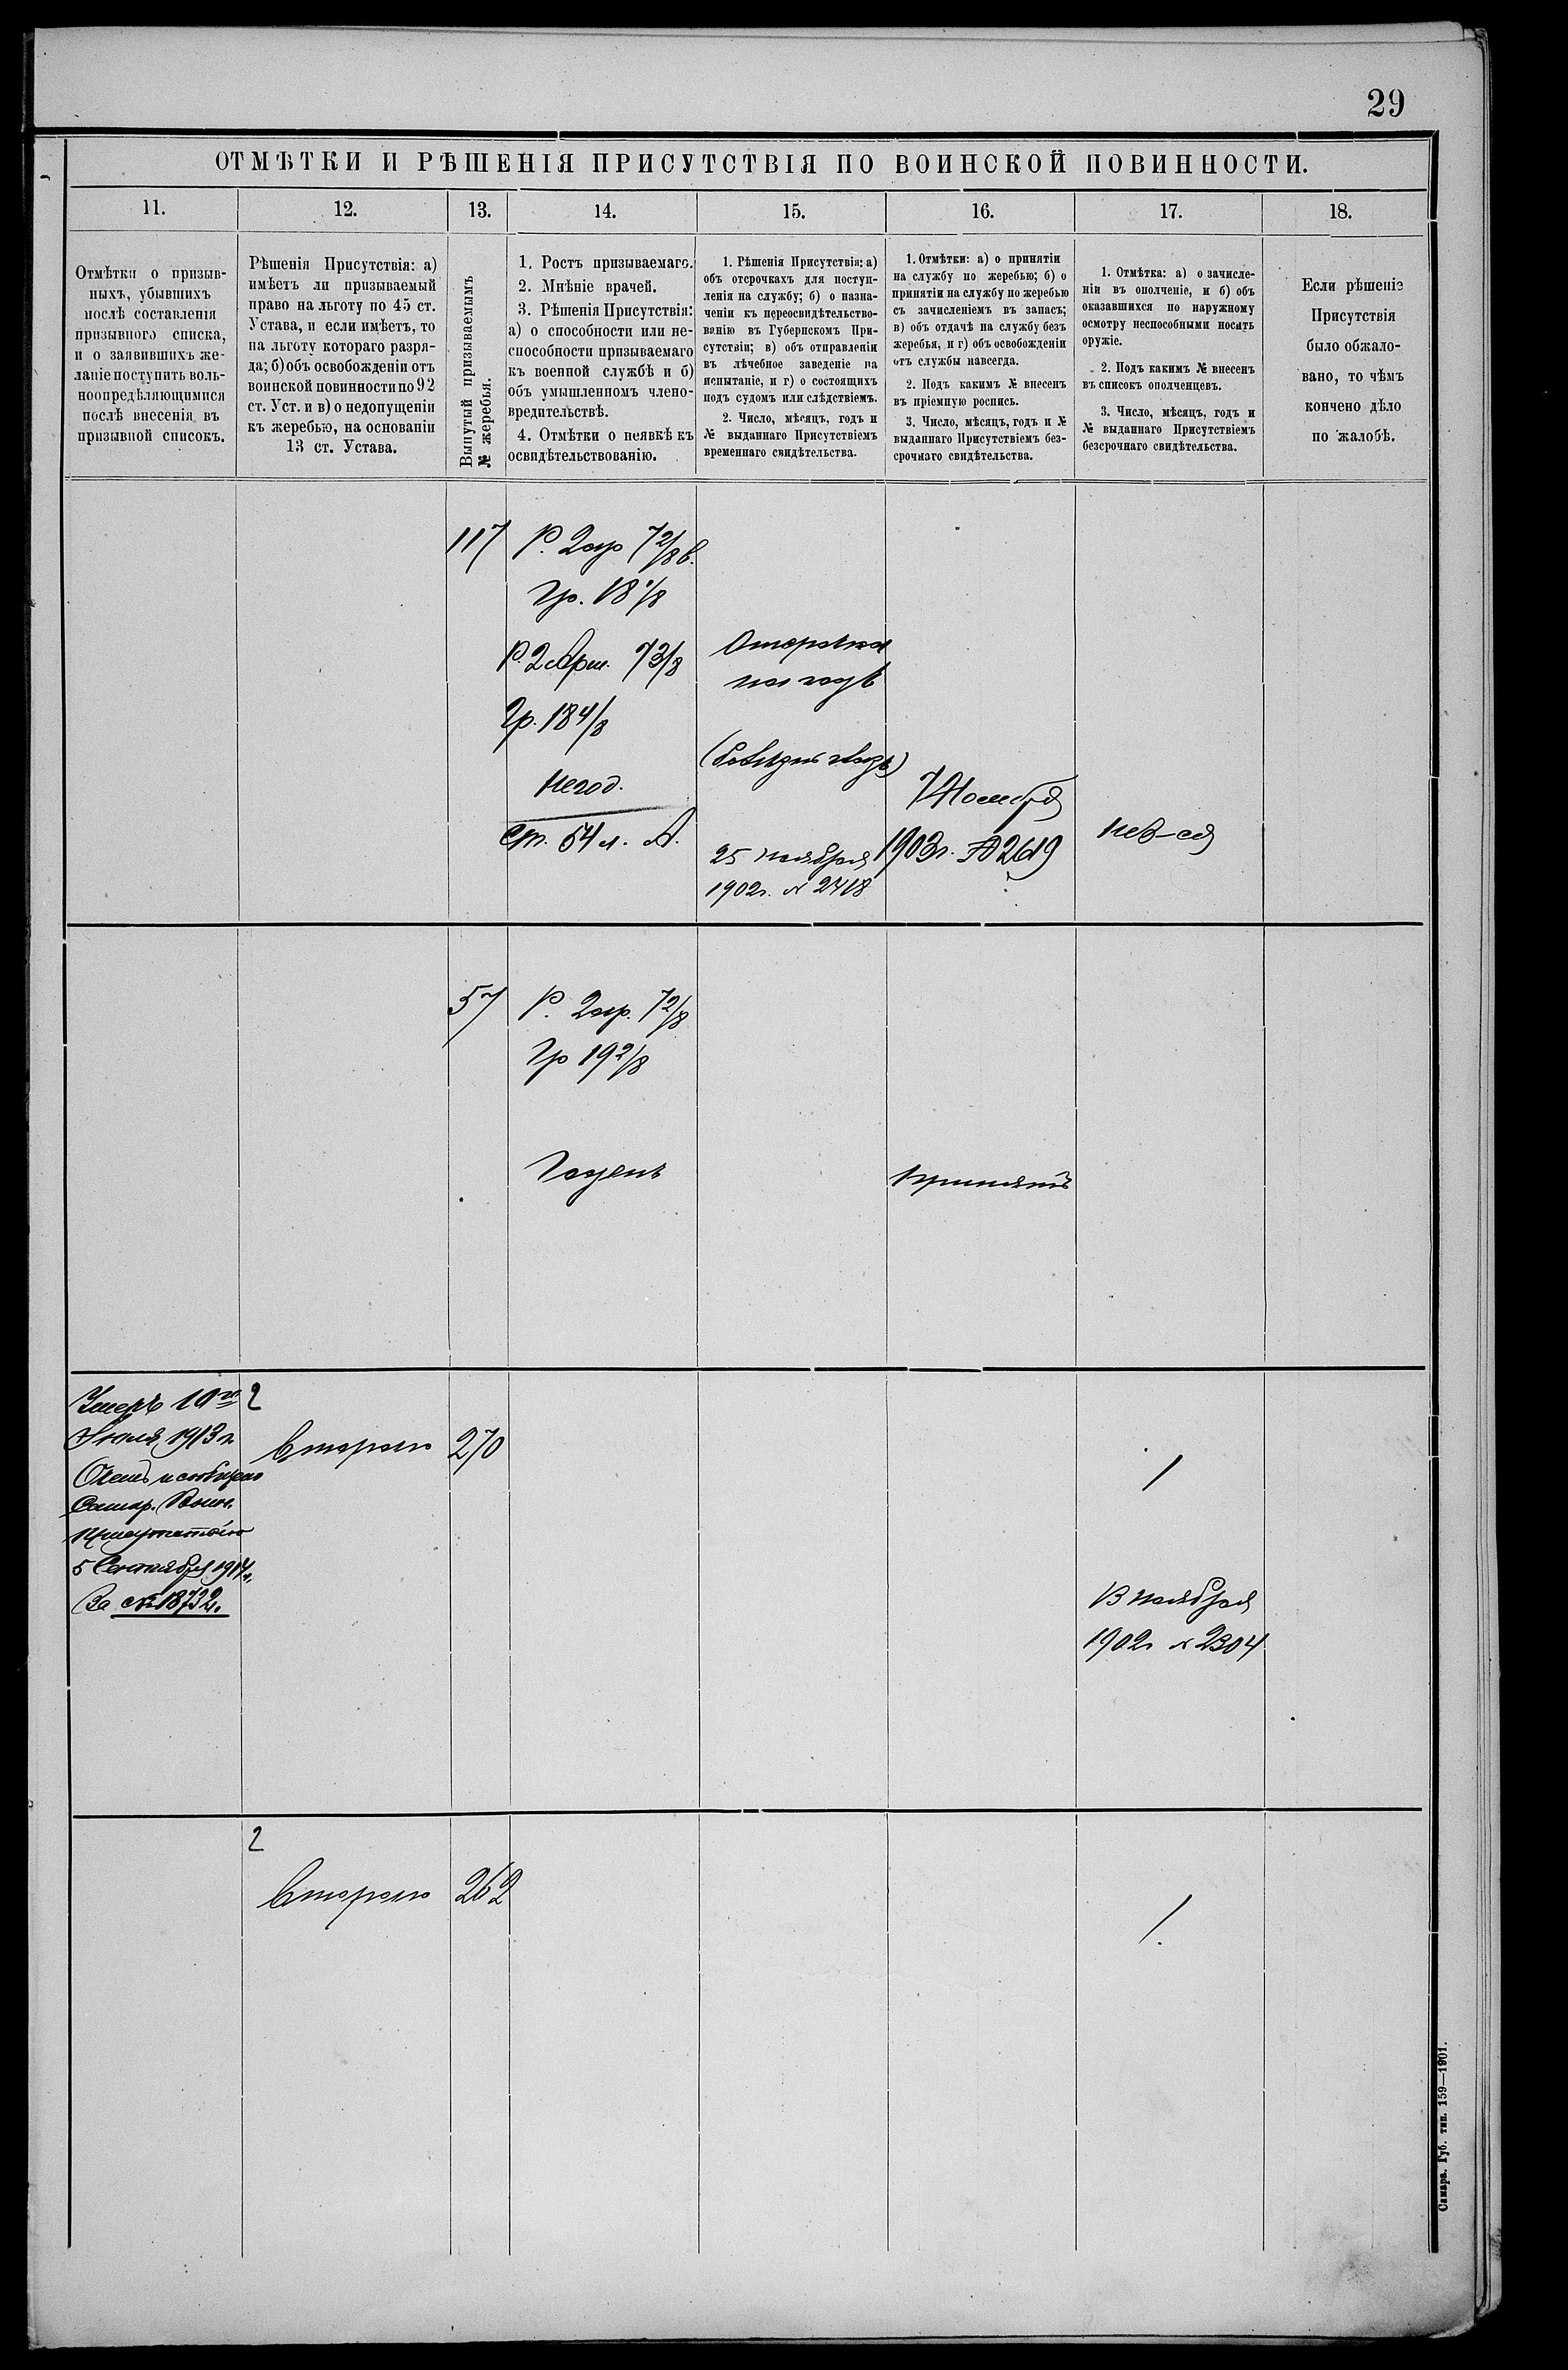 29
ОТМѢТКИ И РѢШЕНІЯ ПРИСУТСТВІЯ ПО ВОИНСКОЙ ПОВИННОСТИ.
11.
12.
13.
14.
15.
16.
17.
18.
Отмѣтки о призыв-
ныхъ, убывшихъ
послѣ составленія
призывного списка,
и о заявившихъ же-
ланіе поступить воль-
ноопредѣляющимися
послѣ внесенія въ
призывной списокъ.
Рѣшенія Присутствія: а)
имѣетъ ли призываемый
право на льготу по 45 ст.
Устава, и если имѣетъ, то
на льготу котораго разря-
да; б) объ освобожденіи отъ
воинской повинности по 92
ст. Уст. и в) о недопущеніи
къ жеребью, на основаніи
13 ст. Устава.
Вынутый призываемымъ
№ жеребья.
1. Ростъ призываемаго.
2. Мнѣніе врачей.
3. Рѣшенія Присутствія:
а) о способности или не-
способности призываемаго
къ военной службѣ и б)
объ умышленномъ члено-
вредительствѣ.
4. Отмѣтки о неявкѣ къ
освидѣтельствованію.
1. Рѣшенія Присутствія; а)
объ отсрочкахъ для поступ-
ленія на службу; б) о назна-
ченіи къ переосвидѣтельство-
ванію въ Губернскомъ При-
сутствіи; в) объ отправленіи
въ лѣчебное заведеніе на
испытаніе, и г) о состоящихъ
подъ судомъ или слѣдствіемъ.
2. Число, мѣсяцъ, годъ и
№ выданнаго Присутствіемъ
временнаго свидѣтельства.
1. Отмѣтки: а) о принятіи
на службу по жеребью; б) о
принятіи на службу по жеребью
съ зачисленіемъ въ запасъ;
в) объ отдачѣ на службу безъ
жеребья, и г) объ освобожденіи
отъ службы навсегда.
2. Подъ какимъ № внесенъ
въ пріемную роспись.
3. Число, мѣсяцъ, годъ и №
выданнаго Присутствіемъ без-
срочнаго свидѣтельства.
1. Отмѣтка: а) о зачисле-
ніи въ ополченіе, и б) объ
оказавшихся по наружному
осмотру неспособными носить
оружіе.
2. Подъ какимъ № внесенъ
въ списокъ ополченцевъ.
3. Число, мѣсяцъ, годъ и
№ выданнаго Присутствіемъ
безсрочнаго свидѣтельства.
Если рѣшеніе
Присутствія
было обжало-
вано, то чѣмъ
кончено дѣло
по жалобѣ.
117
Р. 2 ар 7 2/8 в.
Гр. 18 1/8
Р. 2 Арш. 7 3/8
Гр. 18 4/8
негод.
Ст. 54 л. А.
Отсрочка
на годъ
25 ноября
1902г. № 2418
7 Ноября
1903г. № 2619
нев-ся
57
Р. 2 ар. 7 2/8
Гр 19 2/8
Годенъ
принятъ
Умеръ 10го
Іюля 1913 г.
Самар. Воин.
Присутствію
5 Сентября 1914 г.
За № 18732.
2
Второго
270
1
13 ноября
1902г № 2304
2
Второго
262
1.
Самара. Губ. тип. 159—1901.